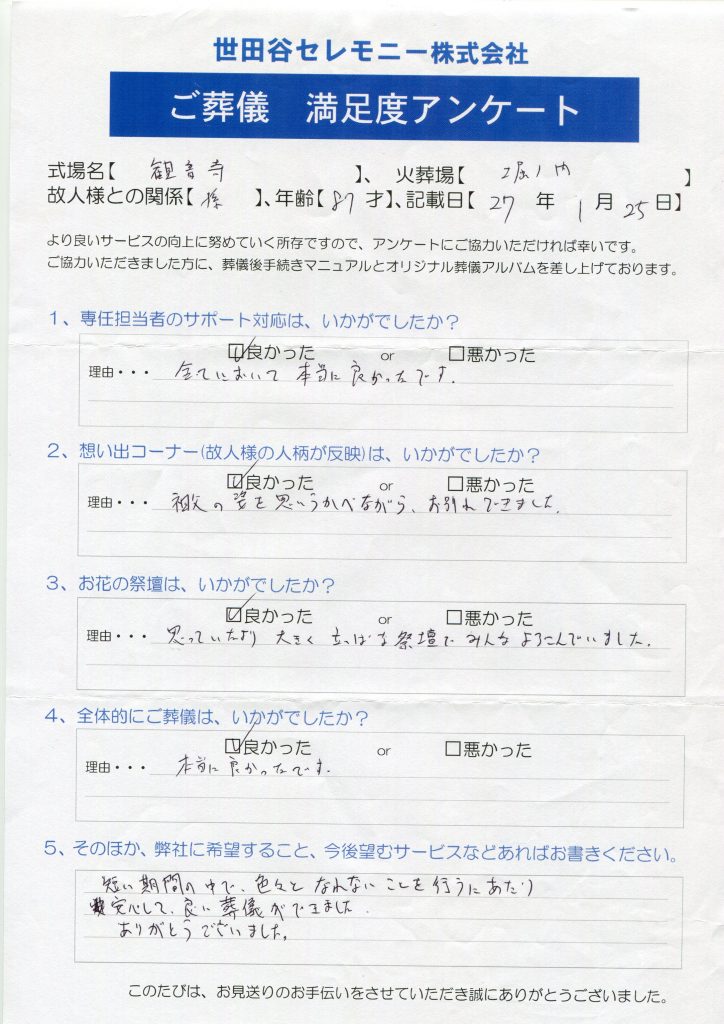 世田谷セレモニー株式会社
ご葬儀 満足度アンケート
式場名【 観音寺 】、 火葬場【 堀ノ内 】
故人様との関係【 孫 】、年齢【 87 才】、記載日【 27 年 1月 25日】
より良いサービスの向上に努めていく所存ですので、アンケートにご協力いただければ幸いです。
ご協力いただきました方に、葬儀後手続きマニュアルとオリジナル葬儀アルバムを差し上げております。
1、専任担当者のサポート対応は、いかがでしたか?
☑良かった or □悪かった
理由・・・ 全てにおいて 本当に良かったです.
2、想い出コーナー(故人様の人柄が反映)は、いかがでしたか?
☑良かった or □悪かった
理由・・・ 祖父の姿を思いうかべながら、お別れできました.
3、お花の祭壇は、いかがでしたか?
☑良かった or □悪かった
理由・・・ 思っていたより 大きく 立っぱな祭壇で みんな よろこんでいました.
4、全体的にご葬儀は、いかがでしたか?
☑良かった or □悪かった
理由・・・ 本当に良かったです.
5、そのほか、弊社に希望すること、今後望むサービスなどあればお書きください。
短い期間の中で、色々と なれない ことを行うにあたり
安心して、良い葬儀ができました.
ありがとうございました。
このたびは、お見送りのお手伝いをさせていただき誠にありがとうございました。